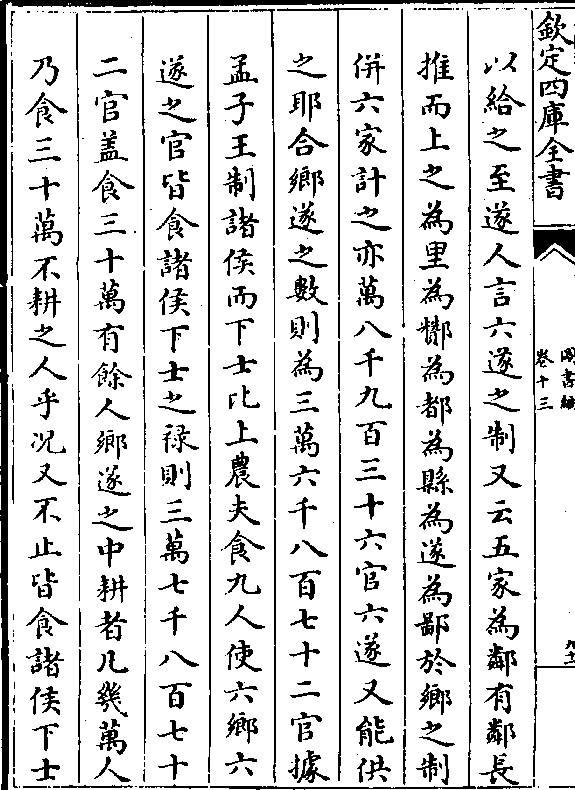 欽定四庫全書
圖書編
卷十三
以給之至遂人言六遂之制又云五家為鄰有鄰長
推而上之為里為酇為都為縣為遂為鄙於鄉之制
併六家計之亦萬八千九百三十六官六遂又能供
之耶合鄉遂之數則為三萬六千八百七十二官據
孟子王制諸侯而下士比上農夫食九人使六鄉六
遂之官皆食諸侯下士之禄則三萬七千八百七十
二官盖食三十萬有餘人鄉遂之中耕者凡幾萬人
乃食三十萬不耕之人乎况又不止皆食諸侯下士